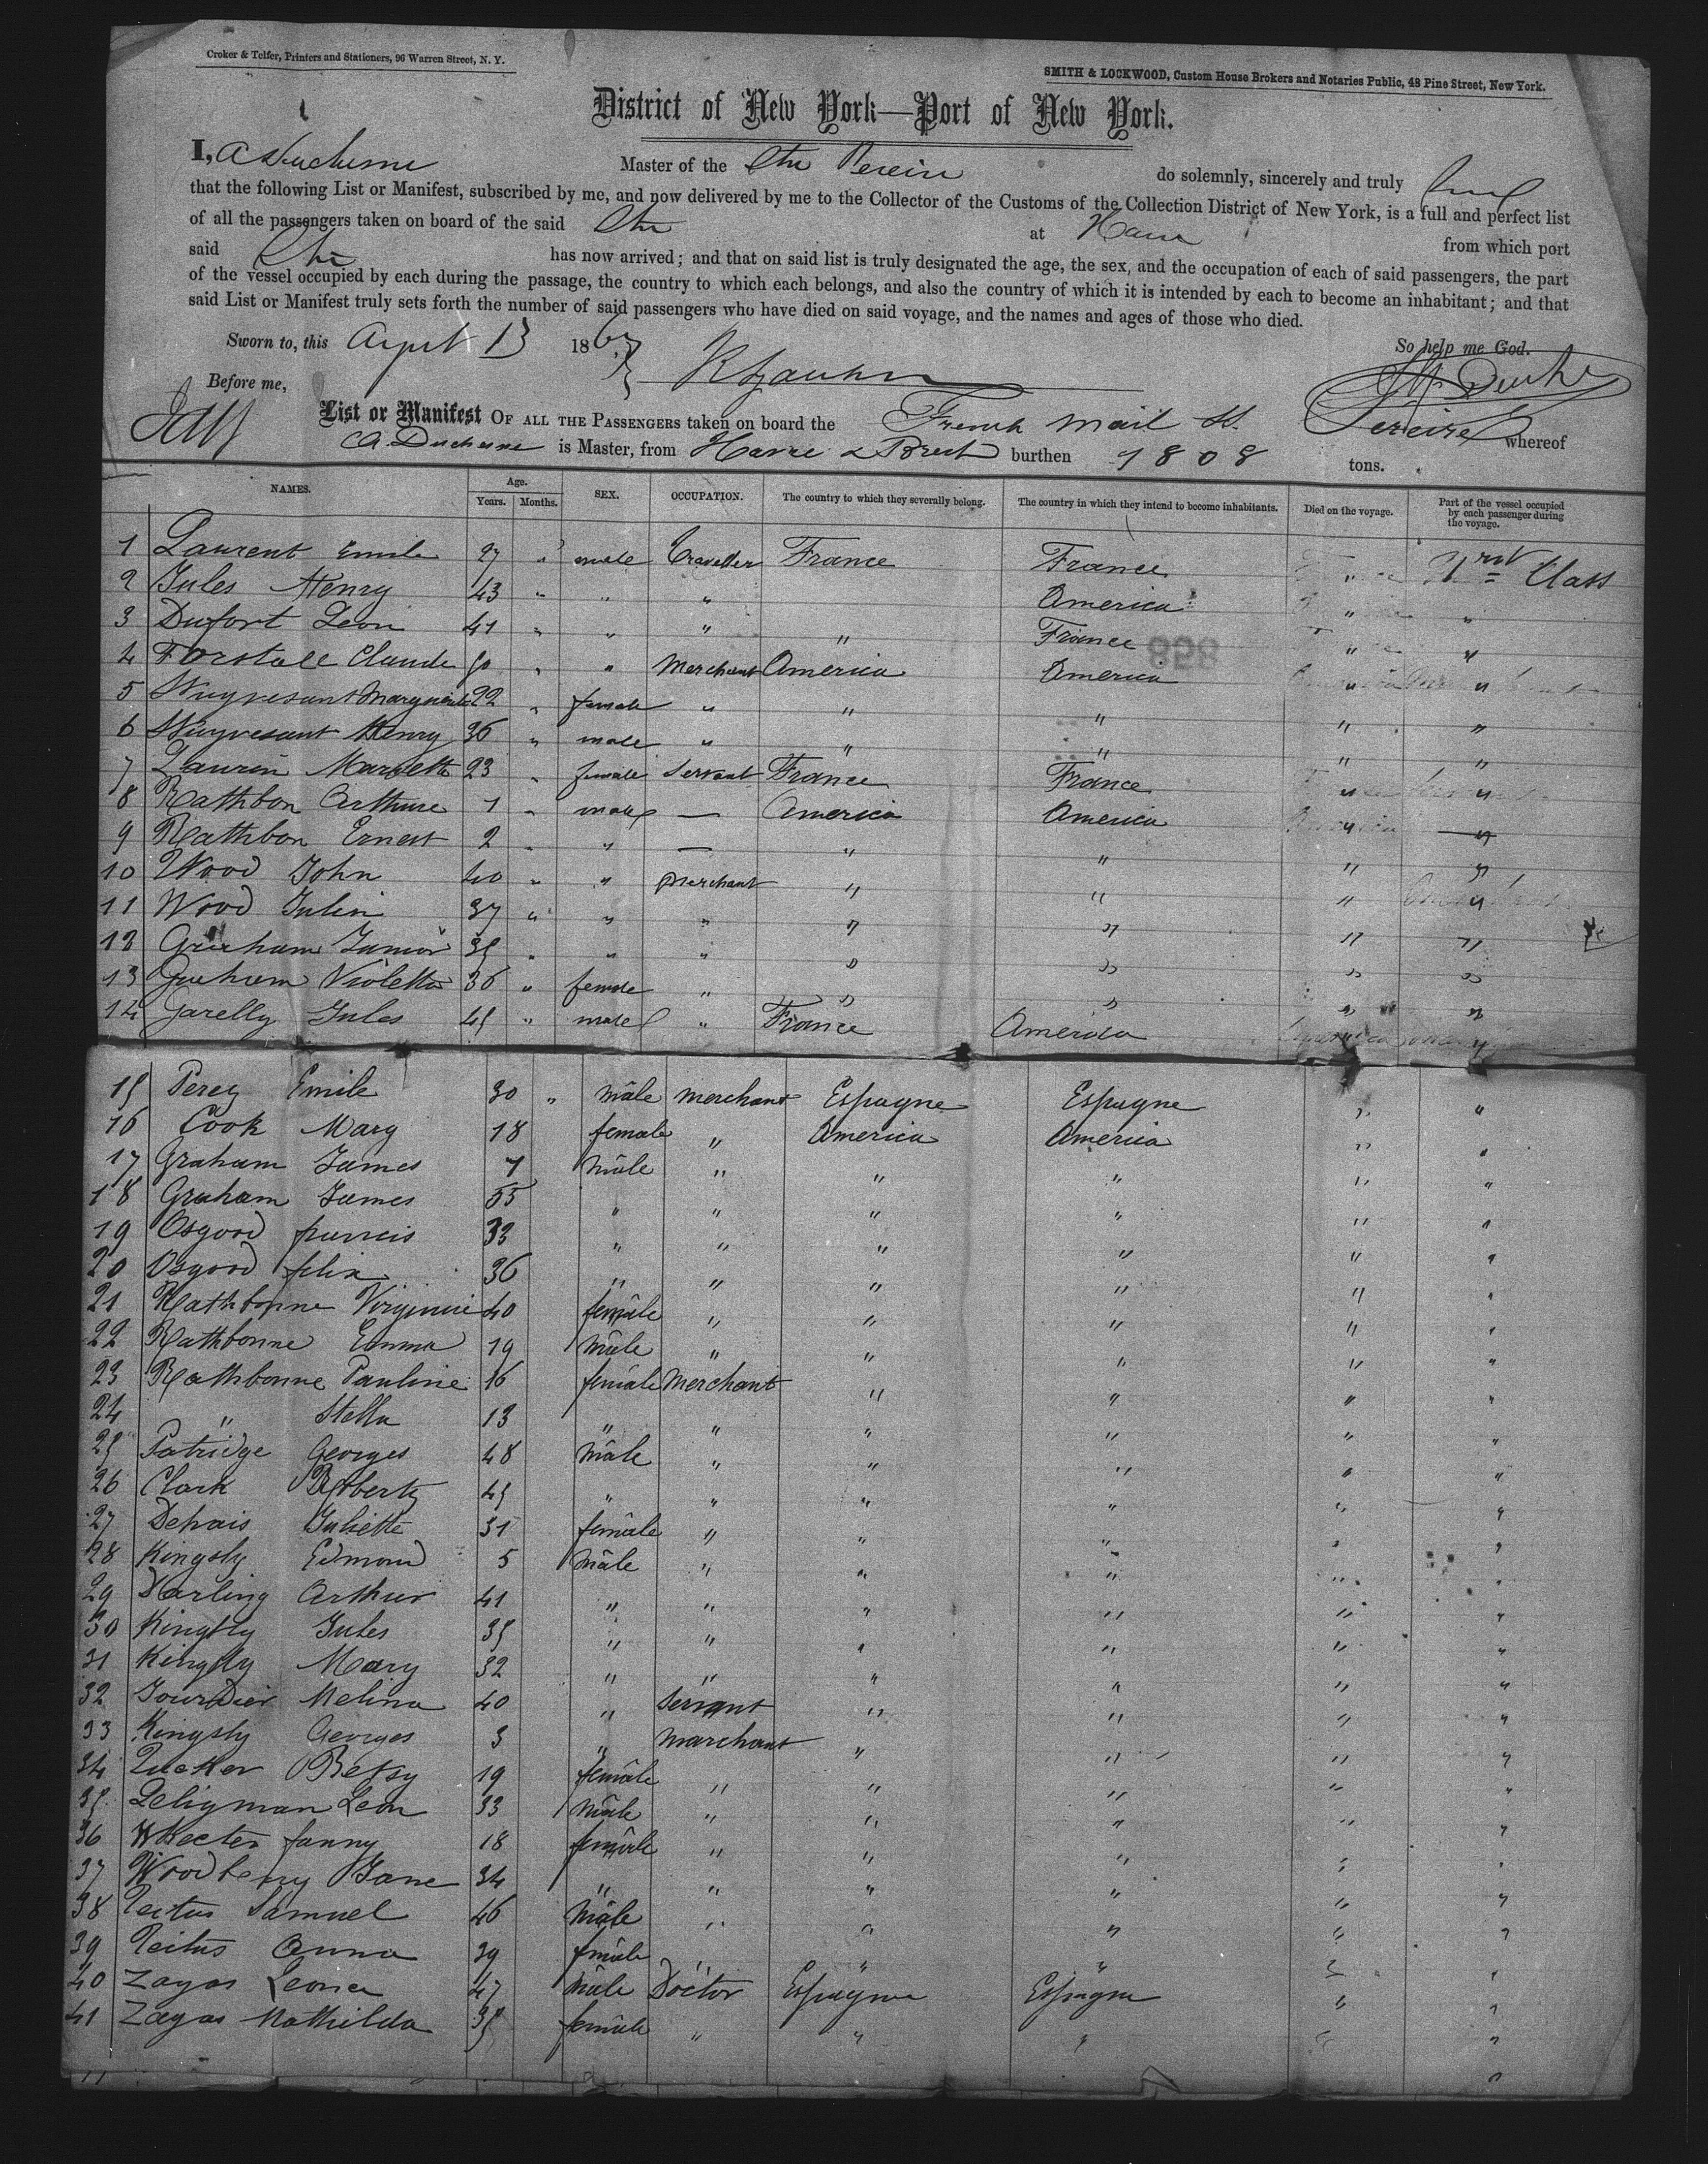 Croker & Telfer, Printers and Stationers, 96 Warren Street, N. Y.
SMITH & LOCKWOOD, Custom House Brokers and Notaries Public, 48 Pine Street, New York.
District of New York—Port of New York.
I, A Duchesne Master of the Str Pereire do solemnly, sincerely and truly
that the following List or Manifest, subscribed by me, and now delivered by me to the Collector of the Customs of the Collection District of New York, is a full and perfect list
of all the passengers taken on board of the said Str at Havre from which port
said Str has now arrived; and that on said list is truly designated the age, the sex, and the occupation of each of said passengers, the part
of the vessel occupied by each during the passage, the country to which each belongs, and also the country of which it is intended by each to become an inhabitant; and that
said List or Manifest truly sets forth the number of said passengers who have died on said voyage, and the names and ages of those who died.
Sworn to, this 13 186 So help me God.
Before me,
List or Manifest OF ALL THE PASSENGERS taken on board the French Mail St. Pereire whereof
A. Duchesne is Master, from Havre & Brest burthen 1808 tons.
NAMES. Age. Years. Months. SEX. OCCUPATION. The country to which they severally belong. The country in which they intend to become inhabitants. Died on the voyage. Part of the vessel occupied by each passenger during the voyage.
1 Laurent Emile 27 " male Traveller France France " Class
2 Jules Henry 43 " " " America " "
3 Dufort Leon 41 " " " " France " "
4 Forstall Claude 50 " " Merchant America America " "
5 Stuyvesant Marguerite 22 " female " " " " "
6 Stuyvesant Henry 36 " male " " " " "
7 Laurin Mariette 23 " female Servant France France " "
8 Rathbon Arthure 1 " male — America America " "
9 Rathbon Ernest 2 " " — " " " "
10 Wood John 40 " " Merchant " " " "
11 Wood Julien 37 " " " " " " "
12 Graham Junior 35 " " " " " " "
13 Graham Violetta 36 " female " " " " "
14 Jarelly Jules 45 " male " France America " "
15 Perez Emile 30 " mâle merchant Espagne Espagne " "
16 Cook Mary 18 female " America America " "
17 Graham James 7 mâle " " " " "
18 Graham James 55 " " " " " "
19 Osgood francis 33 " " " " " "
20 Osgood felix 36 " " " " " "
21 Rathbonne Virginie 40 femâle " " " " "
22 Rathbonne Emma 19 mâle " " " " "
23 Rathbonne Pauline 16 femâle Merchant " " " "
24 " Stella 13 " " " " " "
25 Patridge Georges 48 mâle " " " " "
26 Clark Roberty 45 " " " " " "
27 Dehais Juliette 31 femâle " " " " "
28 Kingsly Edmond 5 mâle " " " " "
29 Darling Arthur 41 " " " " " "
30 Kingsly Jules 35 " " " " " "
31 Kingsly Mary 32 " " " " " "
32 Jourdier Melina 40 " Servant " " " "
33 Kingsly Georges 3 " Marchant " " " "
34 Betsy 19 femâle " " " " "
35 Seligman Leon 33 mâle " " " " "
36 fanny 18 femâle " " " " "
37 Woodberry Jane 34 " " " " " "
38 Samuel 46 mâle " " " " "
39 Anna 39 femâle " " " " "
40 Zayas 47 mâle Doctor Espagne Espagne " "
41 Zayas Mathilda 35 femâle " " " " "